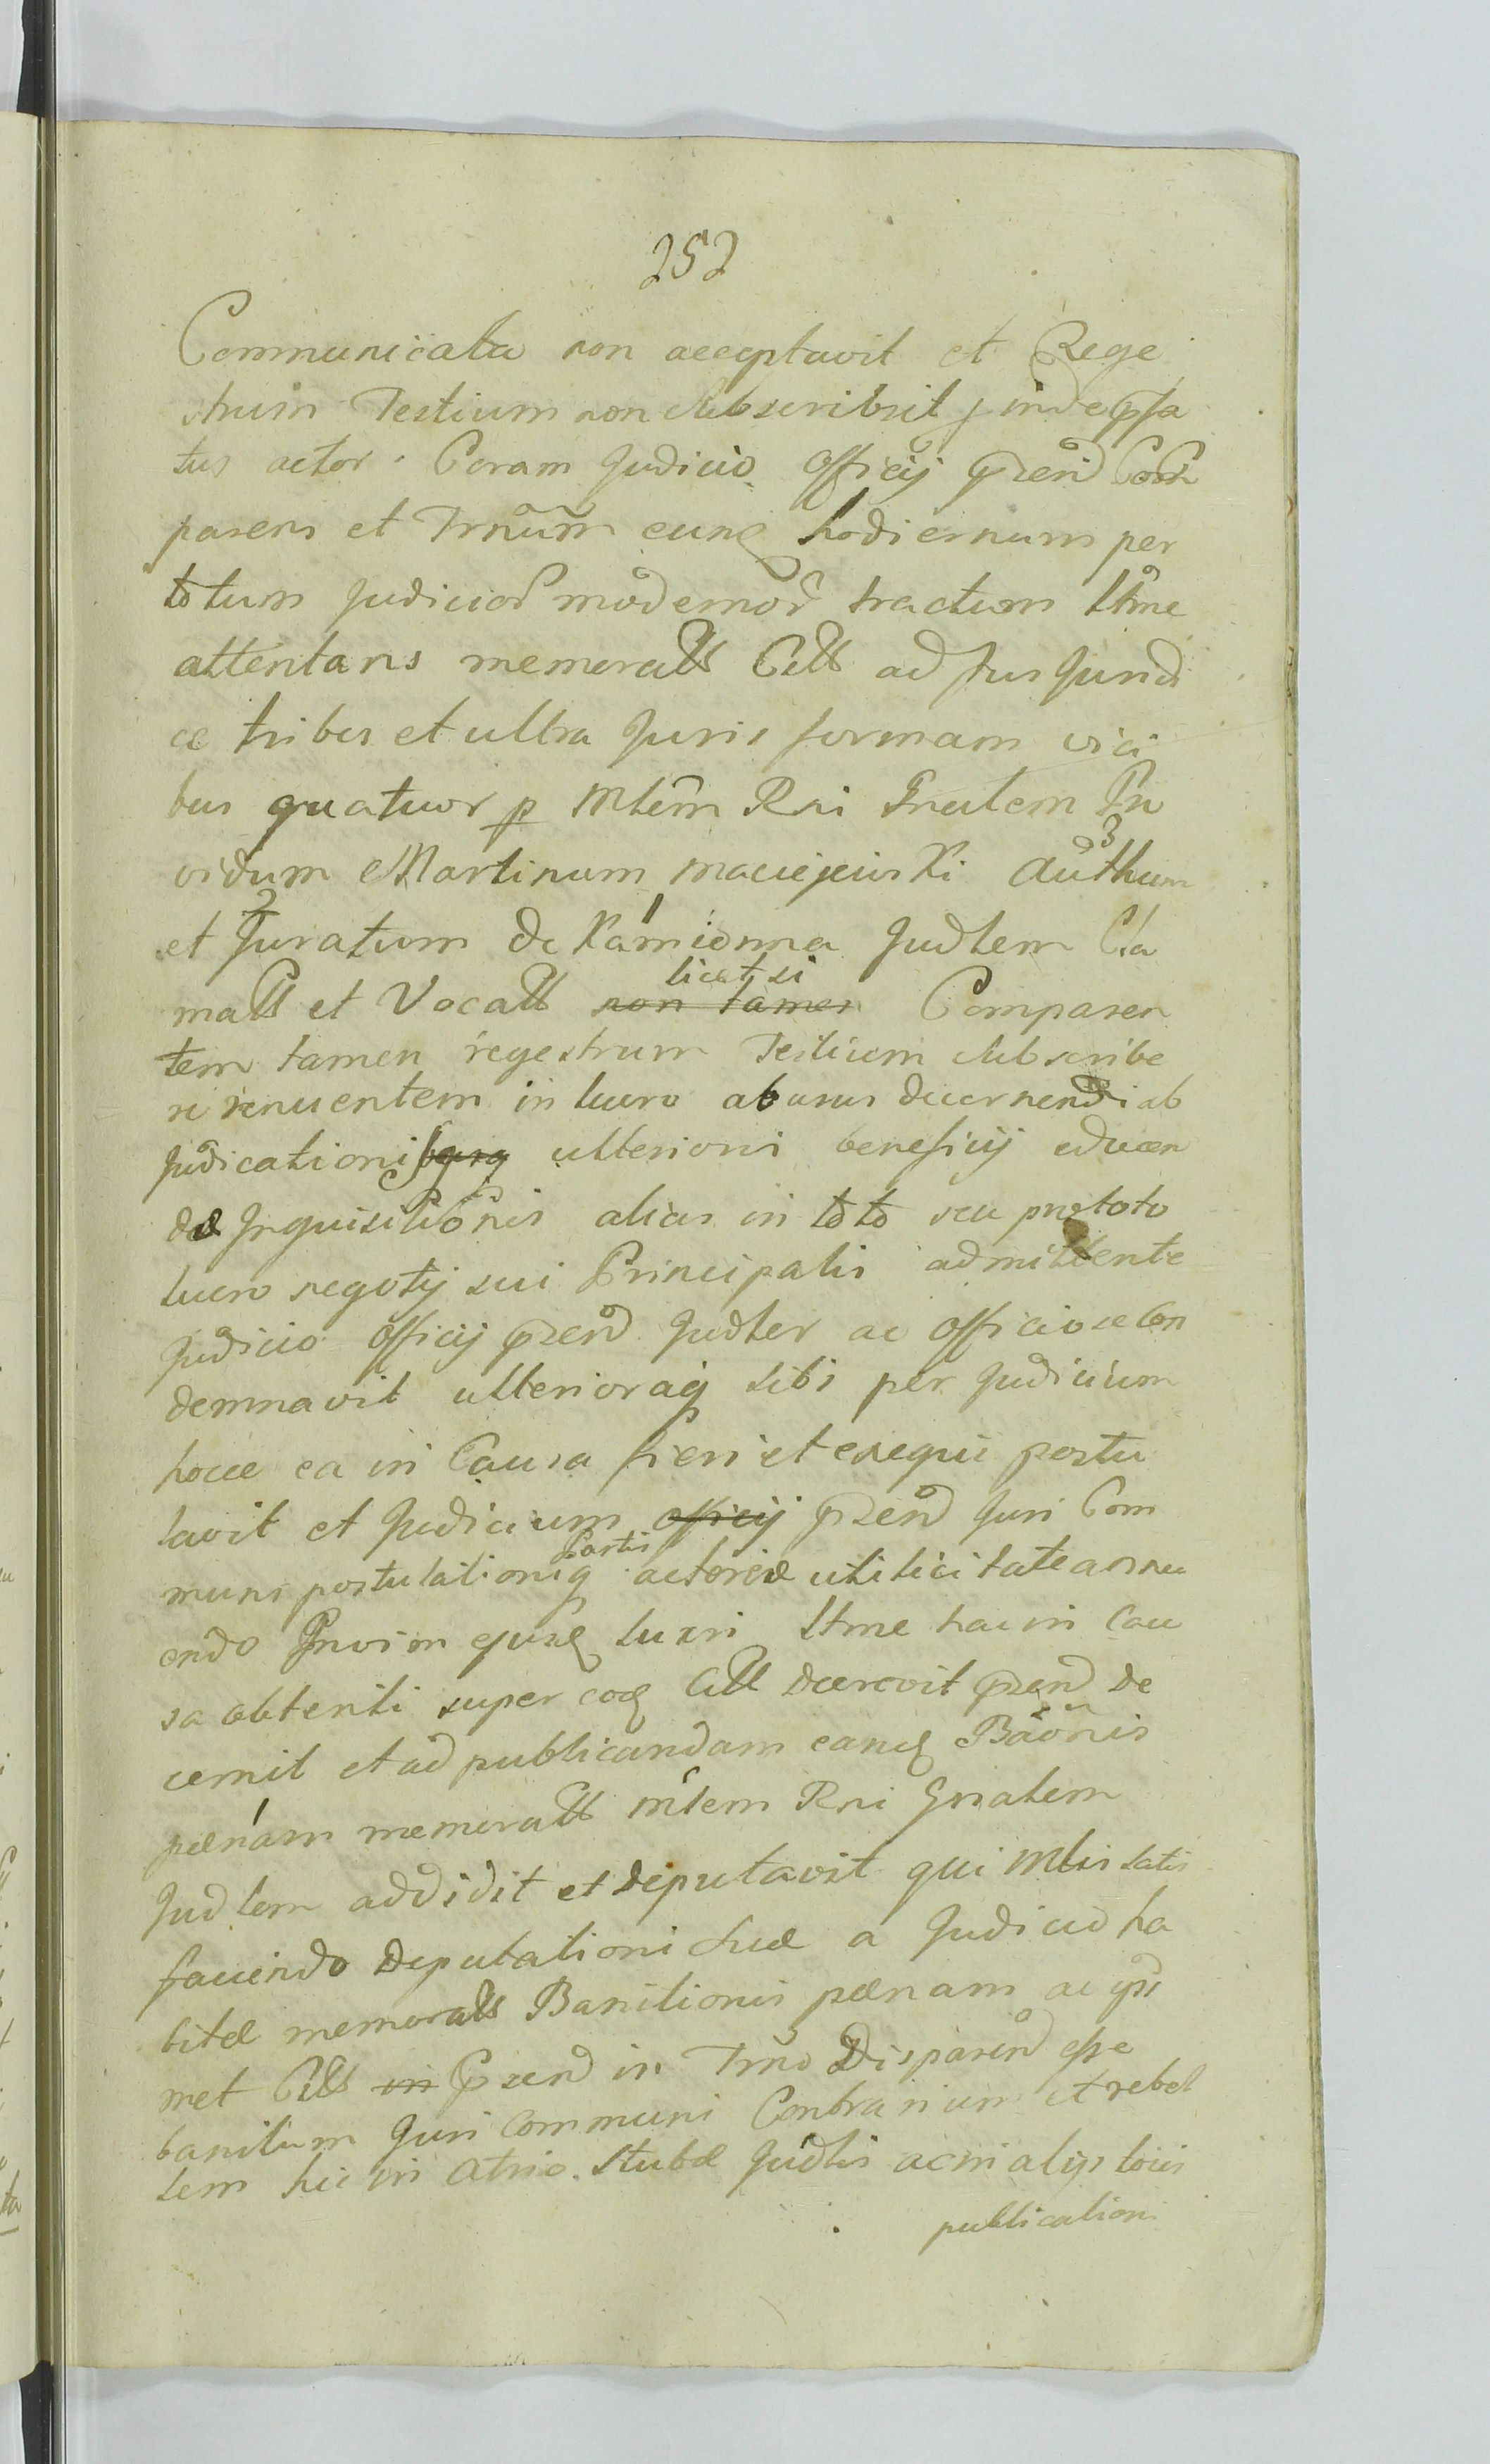 252
Communicata non acceptavit et Rege
strum Testium non Subscribsit inde ꝓfa
tus actor. Coram Judicio Officij ꝓzend Com
parens et Trnum eunq hodiernum per
totum Judicior modernor tractum ltme
attentans memoratt Citt ad Jus Jurid
ce tribus et ultra Juris formam vici
bus quatuor p Mtem Rni Gnalem Pro
vidum Martinum Maciejewski Authum 3
et 2 Juratum de Kamionna Judlem Cla
matt et Vocatt non tamen licet si Comparen
tem tamen regestrum Testium Subscribe
re renuentem in lucro abusus decernendi ab
Judicationis ulterioris beneficij educen
da Inquisitionis alias in toto seu pro toto
lucro negotij sui Principalis admittente
Judicio Officij ꝓzend Judler ac officiose Con
demnavit ulterioraq sibi per Judicium
hocce ea in Causa fieri et exequi postu
lavit et Judicium officij ꝓzend Juri Com
muni postulationiq Partis actoreæ utilicitate annu
endo In vim ejusq lucri ltme hac in Cau
sa obtenti super eoq Citt decrevit ꝓzend de
cernit et ad publicandam eanq Bãonis
pænam memoratt Mtem Rni Gnalem
Judlem addidit et deputavit qui Mtis satis
faciendo Deputationi Suæ a Judicio ha
bitæ memoratt Banitionis pænam ac ips
met Citt in ꝓzend in Trno Disparend esse
banitum Juri Communi Contrarium et rebel
lem hic in atrio Stubæ Judlis ac in alijs locis
publicationi